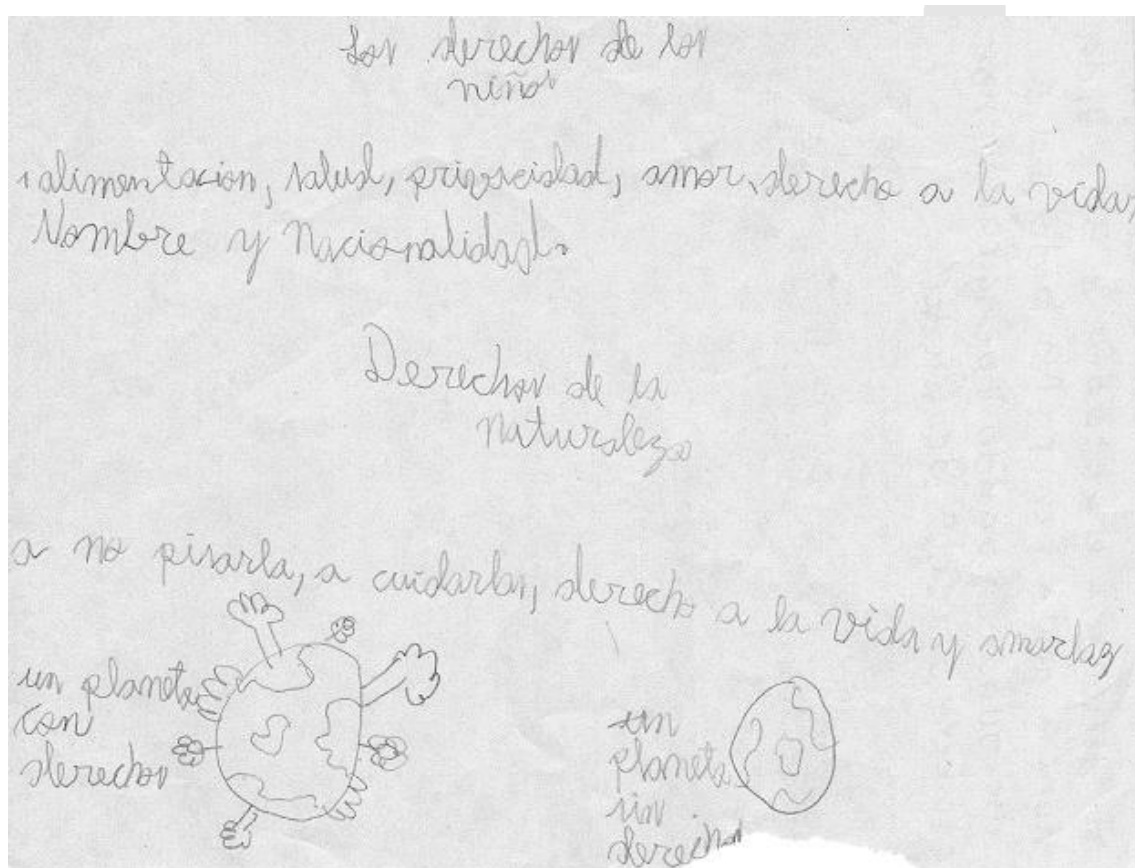 Los derechos de los
niños
alimentacion, salud, privacidad, amor, derecho a la vida,
Nombre y Nacionalidad.
Derechos de la
naturaleza
a no pisarla, a cuidarlas, derecho a la vida y amarlas
un planeta
con
derechos
un
planeta
sin
derechos